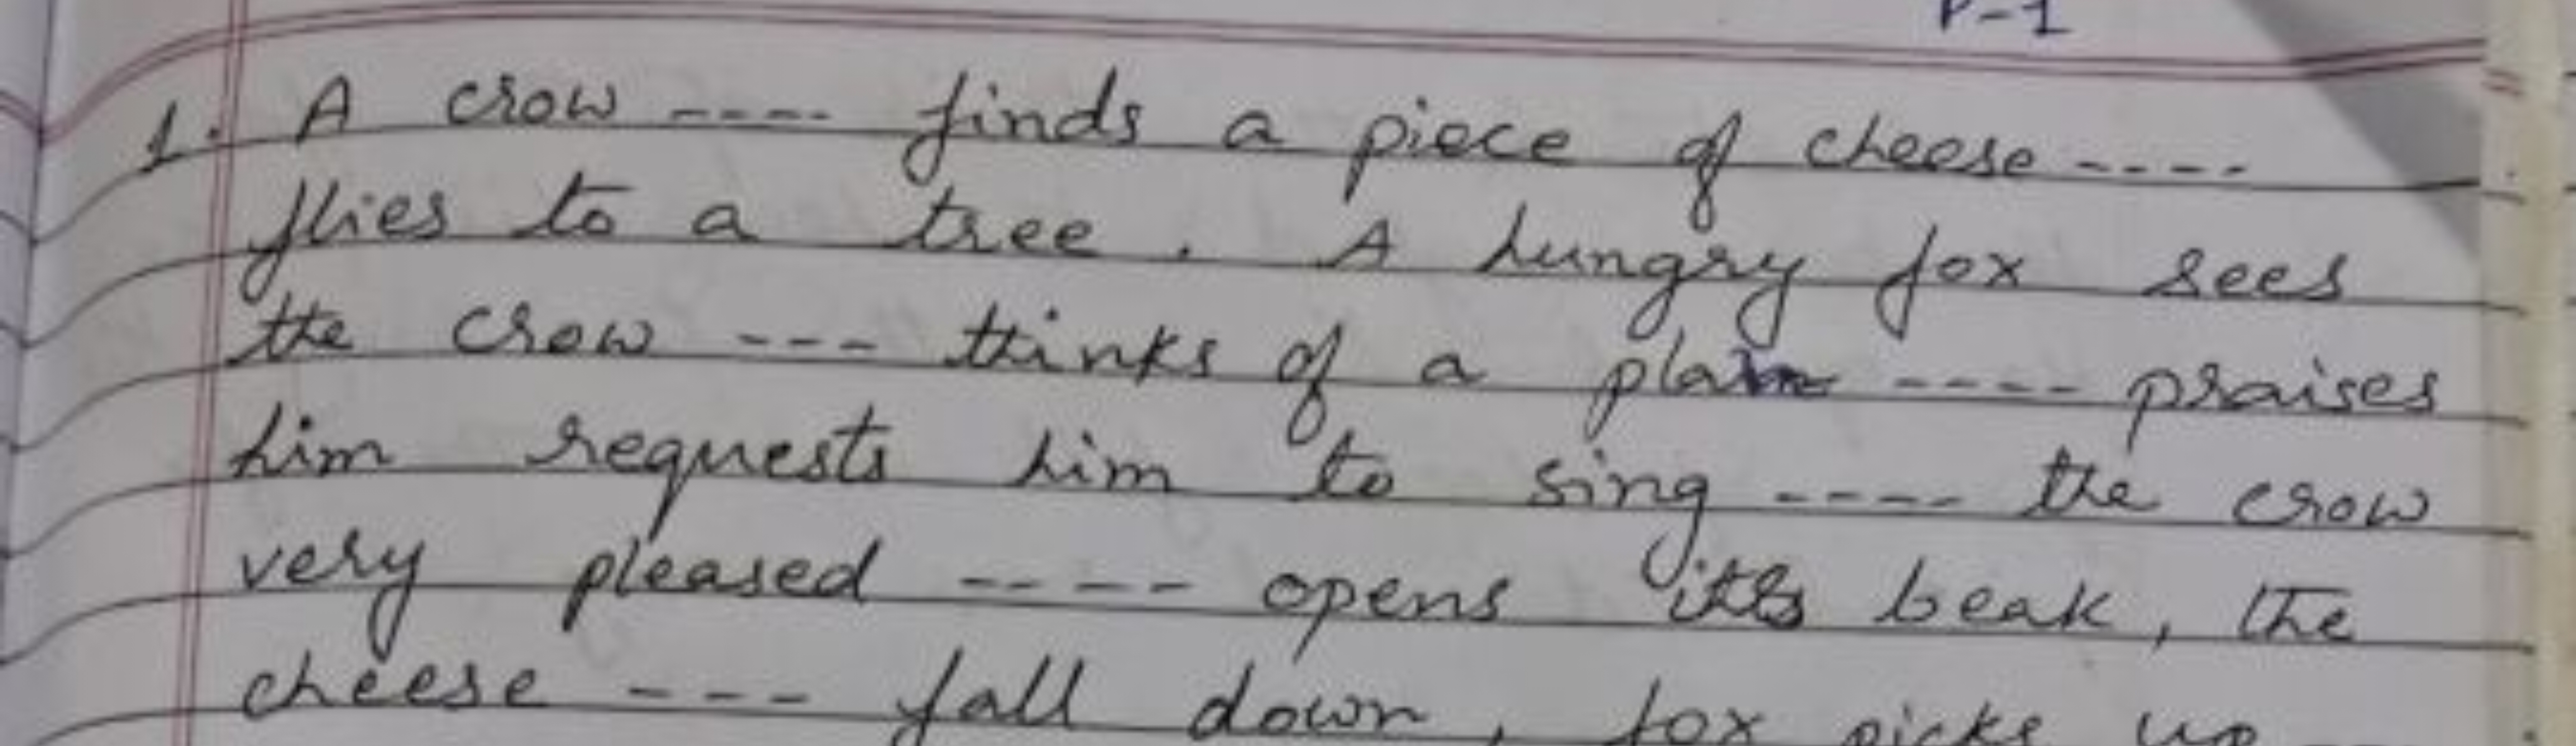 P-1
1. A crow ---- finds a piece of cheese ----
flies to a tree. A hungry fox sees
the crow --- thinks of a plan ---- praises
him requests him to sing ---- the crow
very pleased ---- opens its beak, the
cheese --- fall down, fox picks up